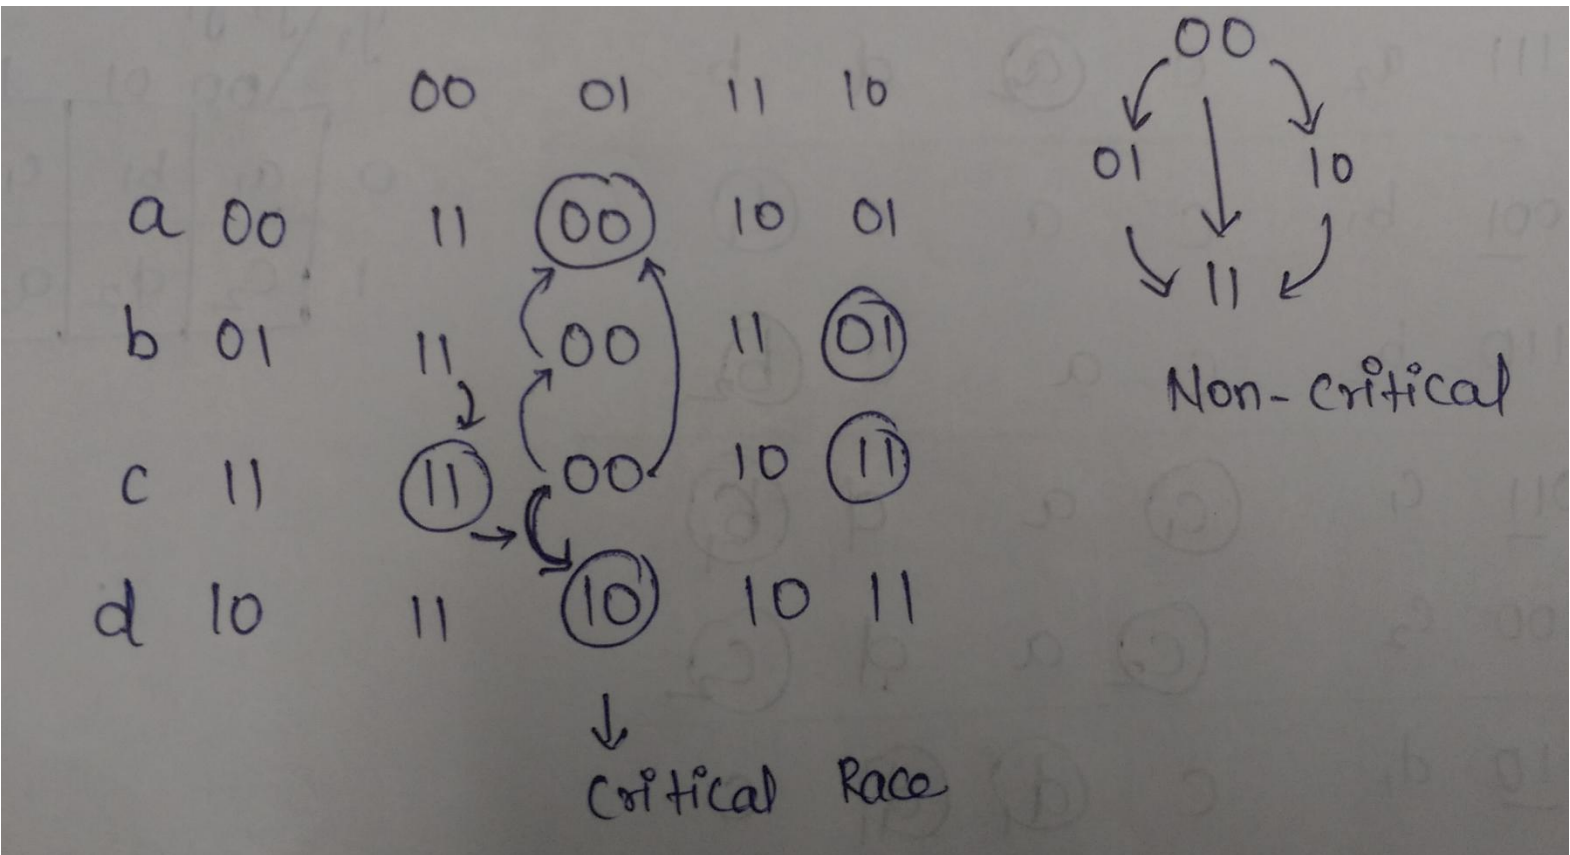 00 01 11 10
a 00 11 00 10 01
b 01 11 00 11 01
c 11 11 00 10 11
d 10 11 10 10 11
Critical Race
00
01 10
11
Non-Critical